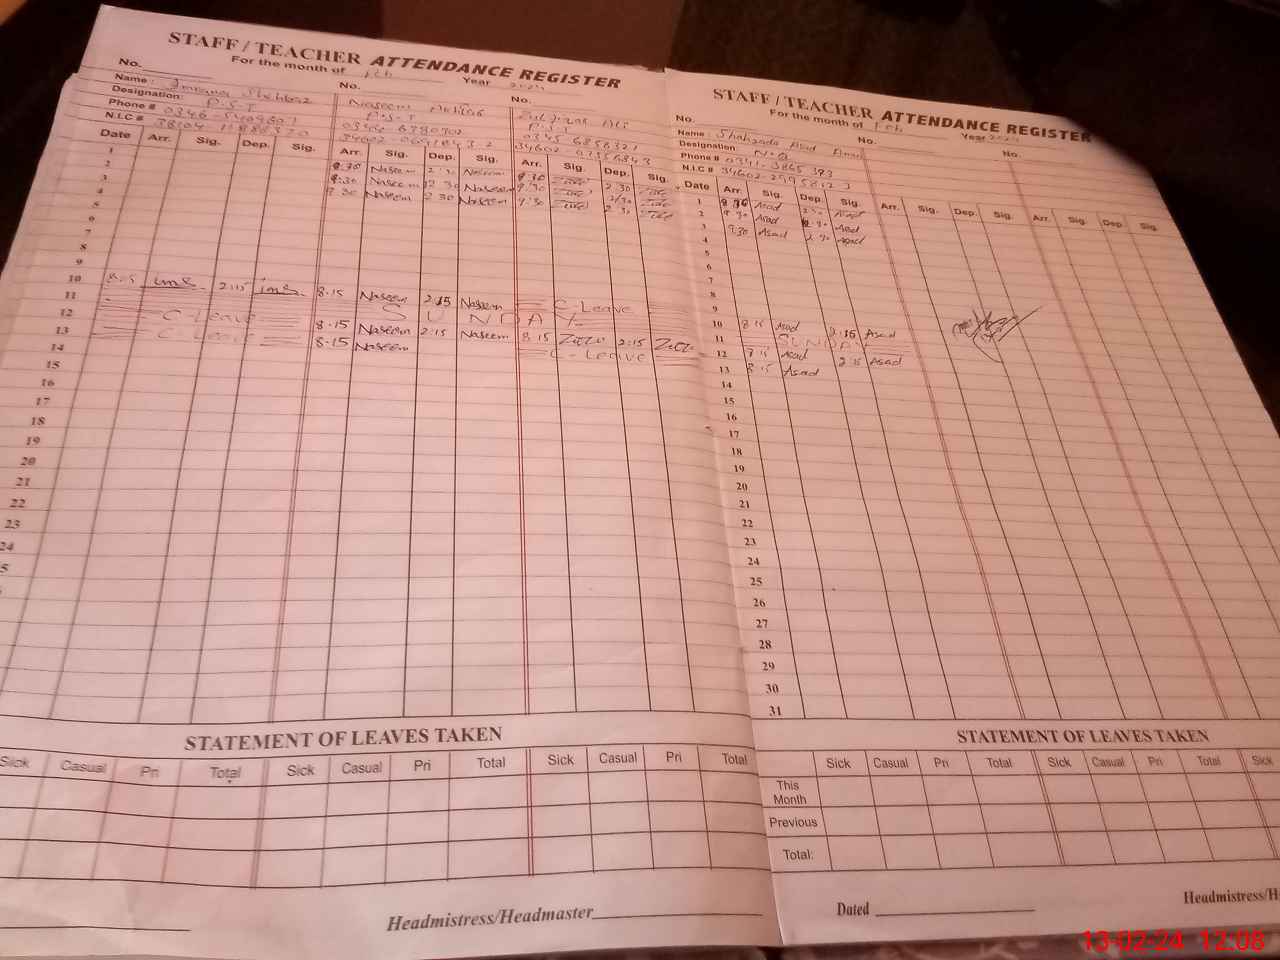 STAFF / TEACHER ATTENDANCE REGISTER
For the month of Feb Year 2024
No. No. No.
Name: Imrana Shahbaz Naseem Akhtar Zulfiqar Ali
Designation: P.S.T P.S.T P.S.T
Phone #
N.I.C #
Date Arr. Sig. Dep. Sig. Arr. Sig. Dep. Sig. Arr. Sig. Dep. Sig.
1 9:30 Naseem 2:30 Naseem 9:30 2:30
2 9:30 Naseem 2:30 Naseem 9:30 2:30
3 9:30 Naseem 2:30 Naseem 9:30 2:30
4
5
6
7
8
9
10 8:15 ims. 2:15 ims. 8-15 Naseem 2:15 Naseem C-Leave
11 SUNDAY
12 C-Leave 8-15 Naseem 2:15 Naseem 8:15 2:15
13 C-Leave 8-15 Naseem C-Leave
14
15
16
17
18
19
20
21
22
23
24
STATEMENT OF LEAVES TAKEN
Sick Casual Pri Total Sick Casual Pri Total Sick Casual Pri Total
Headmistress/Headmaster
STAFF / TEACHER ATTENDANCE REGISTER
For the month of Feb Year 2024
No. No. No.
Name: Shahzada Asad
Designation: N.Q
Phone #
N.I.C #
Date Arr. Sig. Dep. Sig. Arr. Sig. Dep. Sig. Arr. Sig. Dep. Sig.
1 9:30 Asad 2:30 Asad
2 9:30 Asad 2:30 Asad
3 9:30 Asad 2:30 Asad
4
5
6
7
8
9
10 8:15 Asad 2:15 Asad
11 SUNDAY
12 8:15 Asad 2:15 Asad
13 8:15 Asad
14
15
16
17
18
19
20
21
22
23
24
25
26
27
28
29
30
31
STATEMENT OF LEAVES TAKEN
Sick Casual Pri Total Sick Casual Pri Total Sick
This Month
Previous
Total:
Dated
Headmistress/H
13-02-24 12:08